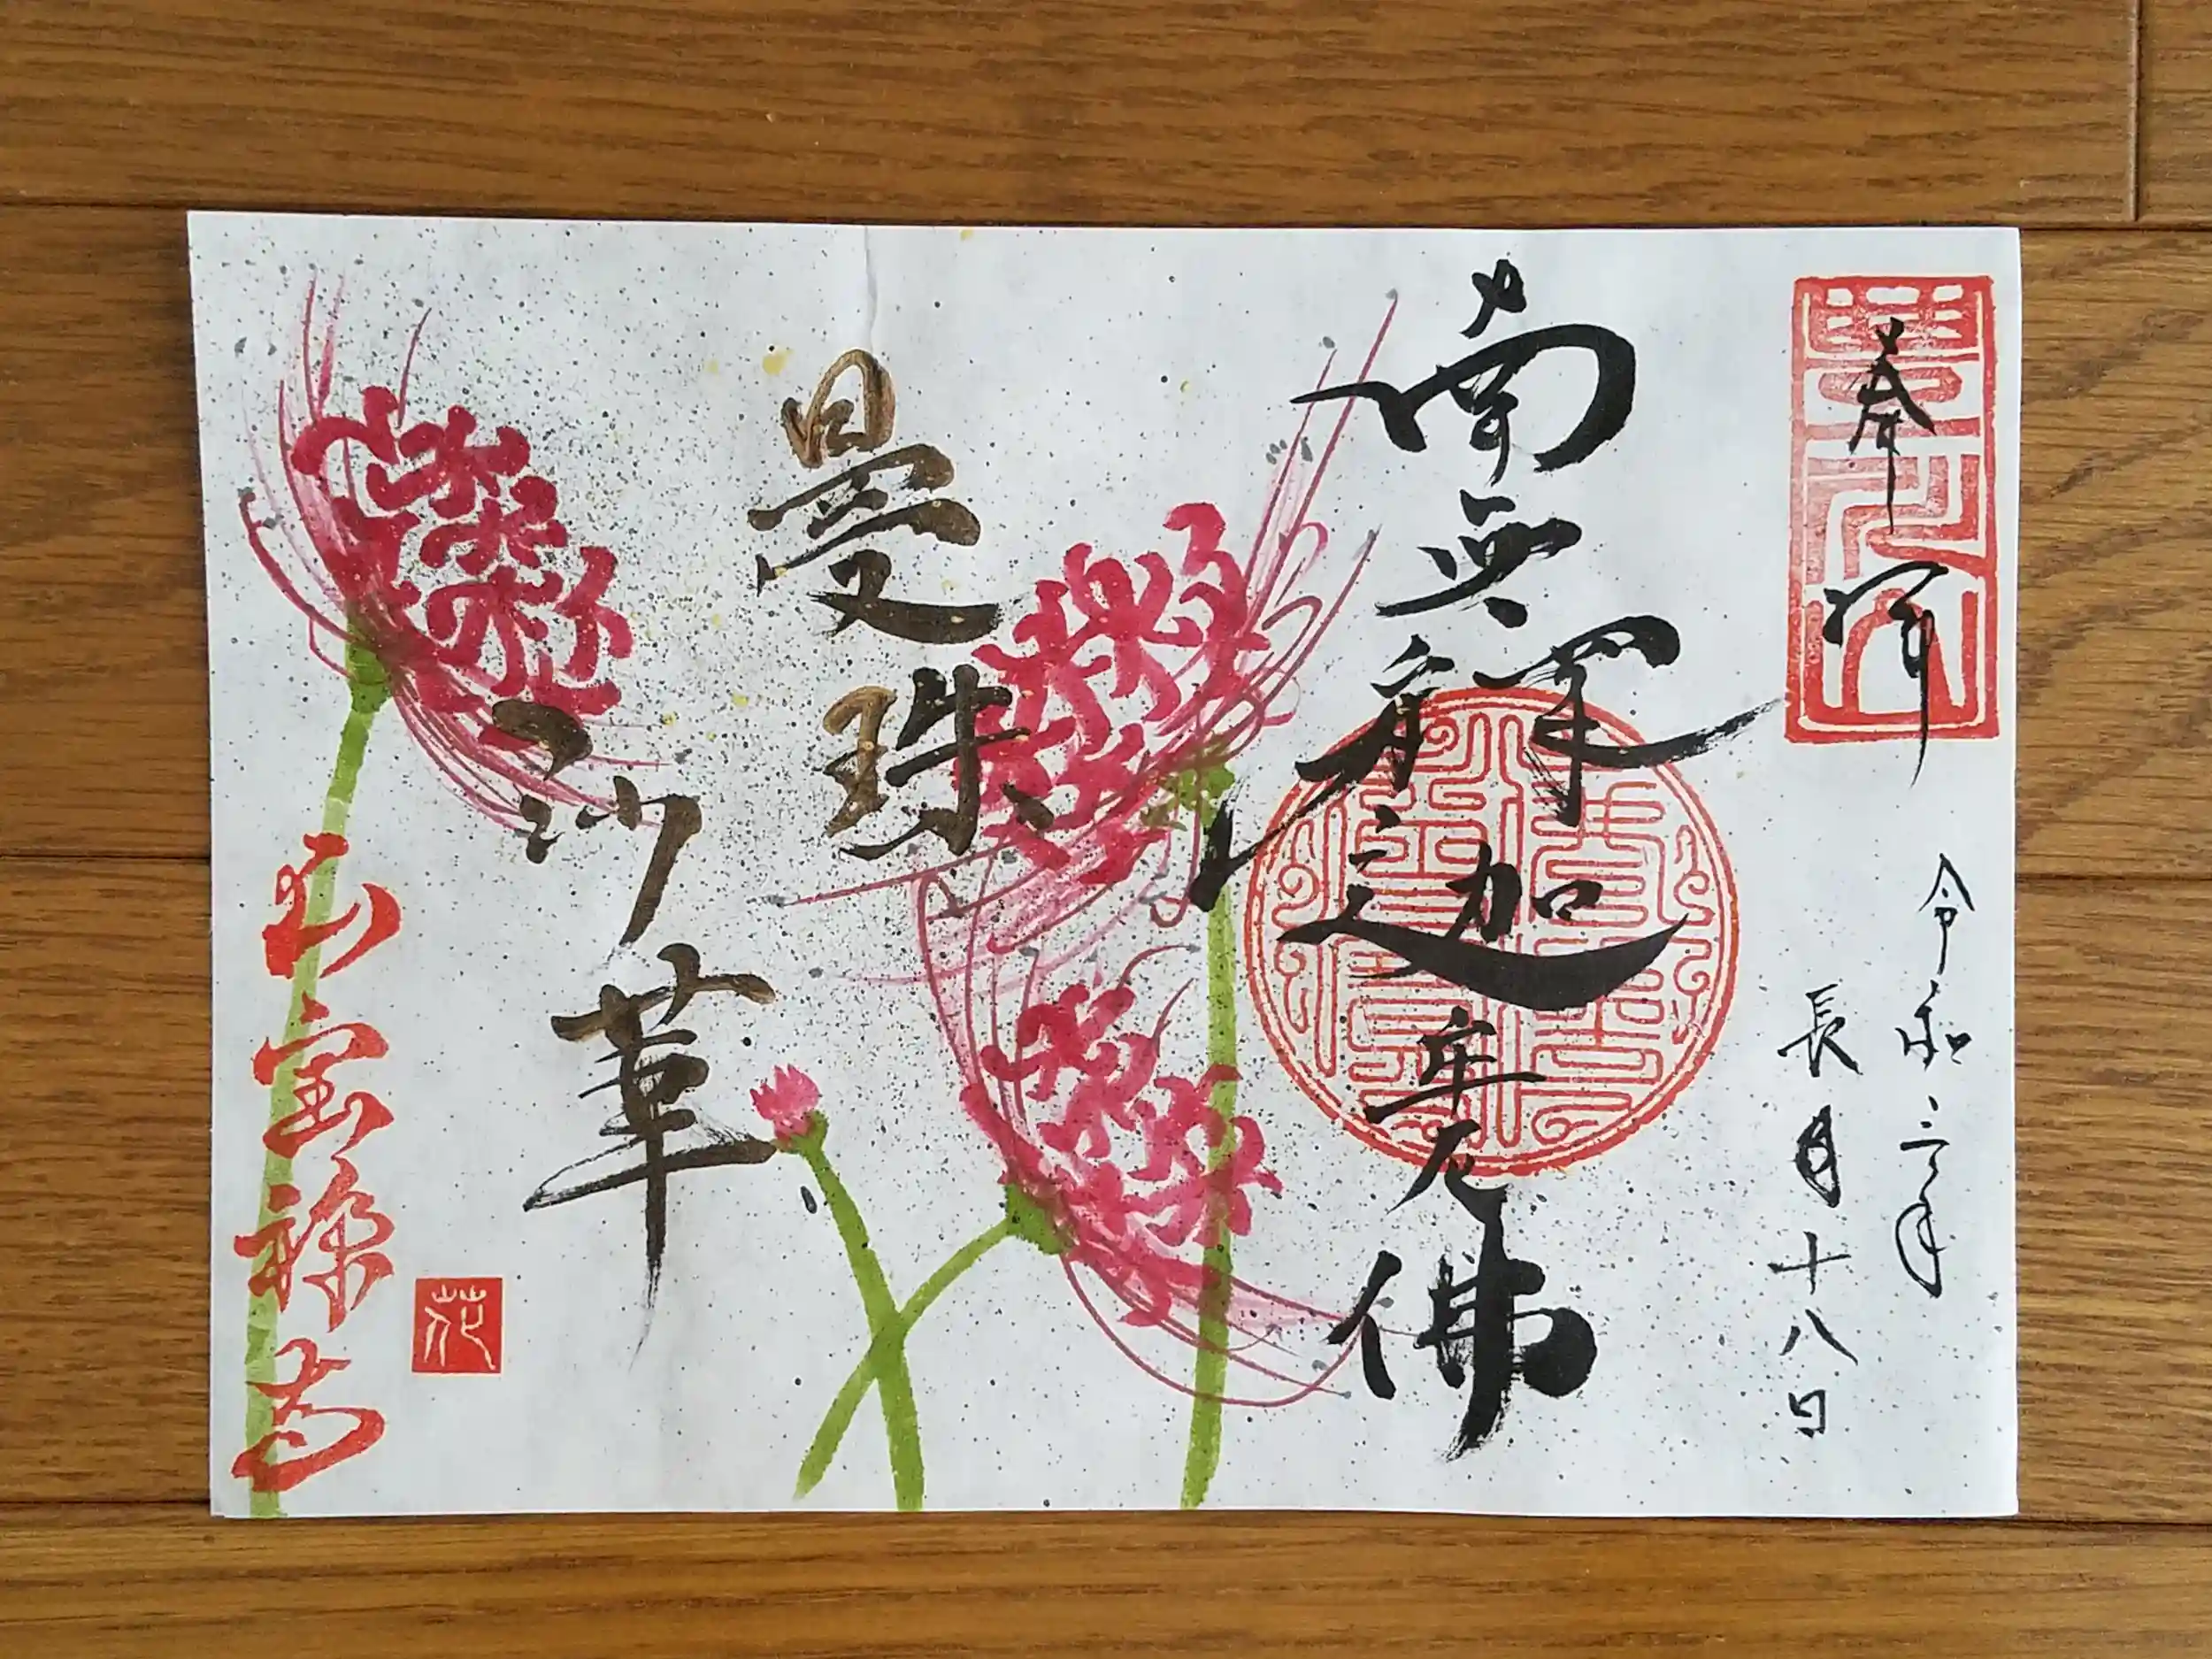 奉拝
令和三年
長月十八日
南無釋迦牟尼佛
曼珠
沙華
宝禅寺
花